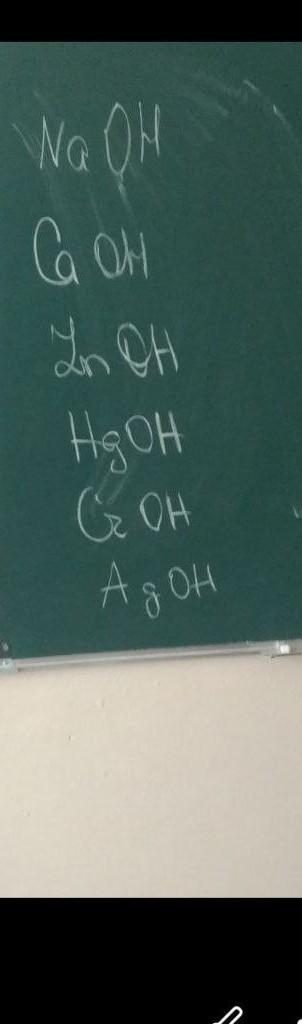 NaOH
CaOH
ZnOH
HgOH
CrOH
AgOH